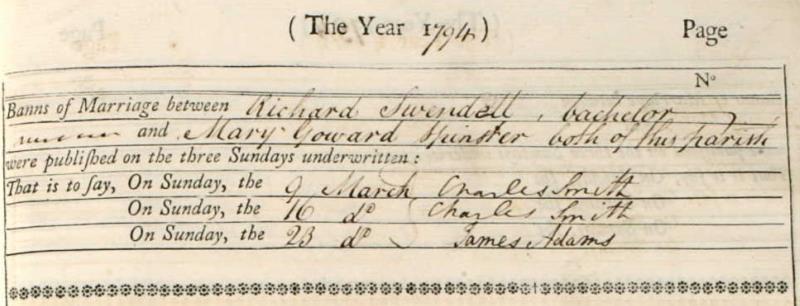 ( The Year 1794 ) Page
No
Banns of Marriage between Richard Swendell, bachelor
and Mary Goward Spinster both of this parish
were publiſhed on the three Sundays underwritten :
That is to ſay, On Sunday, the 9 March Charles Smith
On Sunday, the 16 do Charles Smith
On Sunday, the 23 do James Adams